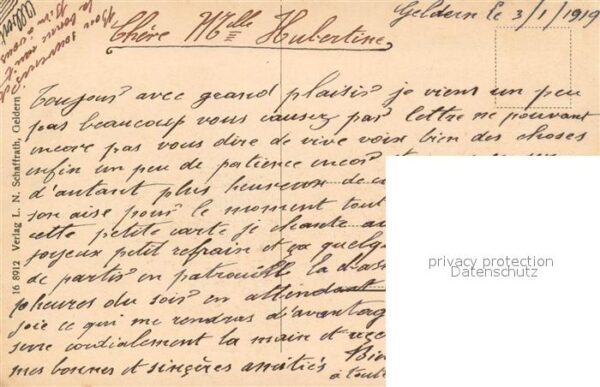 Geldern le 3/1/1919
Chère Mlle Hubertine
Toujours avec grand plaisir je viens un peu
pas beaucoup vous causez par lettre ne pouvant
encore pas vous dire de vive voix bien des choses
enfin un peu de patience encor
d'autant plus heureux de
son aise pour le moment tout
cette petite carte je chante au
joyeux petit refrain et ça quelque
de partir en patrouille la d'ass
heures du soir en attendant
joie ce qui me rendras d'avantag
serre cordialement la main et
mes bonnes et singères amitiés Bien
à tout
16 8912 Verlag L. N. Schaffrath, Geldern
privacy protection
Datenschutz